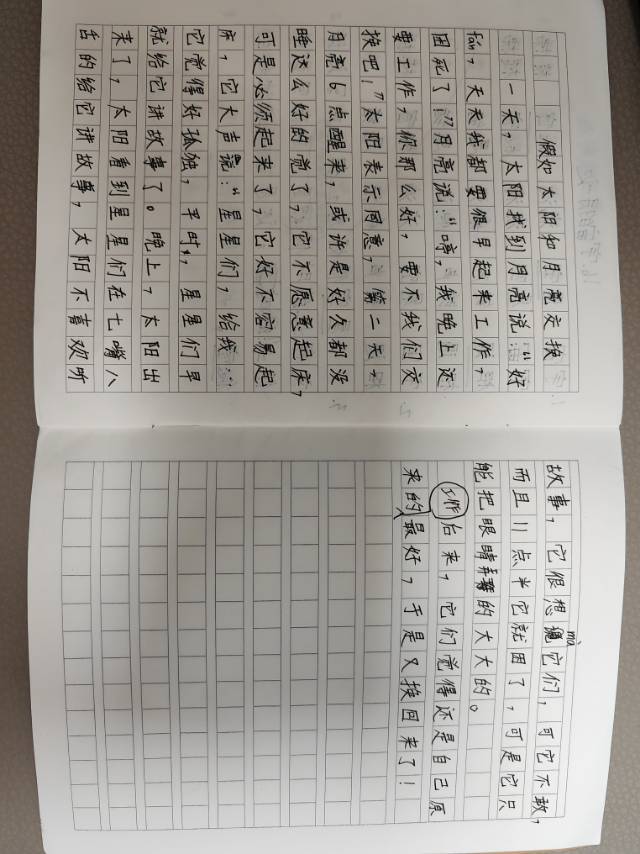 假如太阳和月亮交换
一天，太阳找到月亮说：“好
fán，天天我都要很早起来工作，
困死了！”月亮说：“哼，我晚上还
要工作，你那么好，要不我们交
换吧！”太阳表示同意，第二天，
月亮6点醒来，或许是好久都没
睡这么好的觉了，它不愿意起床，
可是必须起来了，它好不容易起
床，它大声说：“星星们，给我……
它觉得好孤独，平时，星星们早
就给它讲故事了。晚上，太阳出
来了，太阳看到星星们在七嘴八
舌的给它讲故事，太阳不喜欢听
故事，它很想mà它们，可它不敢，
而且11点半它就困了，可是它只
能把眼睛弄的大大的。
后来，它们觉得还是自己原
来的工作最好，于是又换回来了！